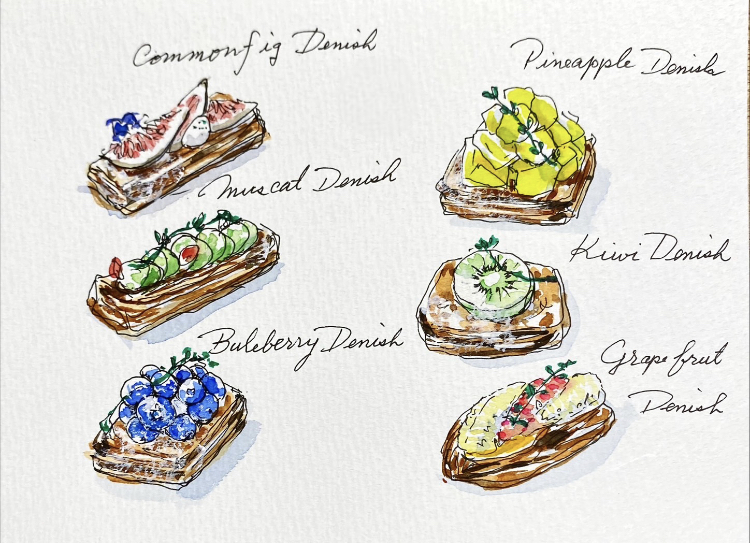 Commonfig Denish
Muscat Denish
Buleberry Denish
Pineapple Denish
Kiwi Denish
Grapefrut
Denish